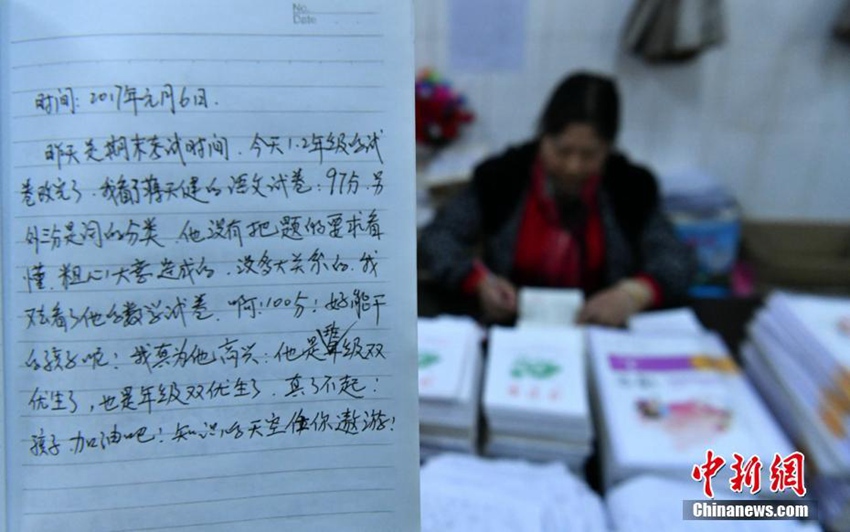 No.
Date
时间:2017年元月6日.
昨天是期末考试时间,今天1.2年级的试
卷改完了,我看了蒋天健的语文试卷:97分,另
外三分是词的分类,他没有把题的要求看
懂,粗心大意造成的,没多大关系的,我
又去看了他的数学试卷,啊!100分!好能干
的孩子呢!我真为他高兴:他是班级双
优生了,也是年级双优生了,真了不起!
孩子,加油吧!知识的天空任你遨游!
中新网
Chinanews.com